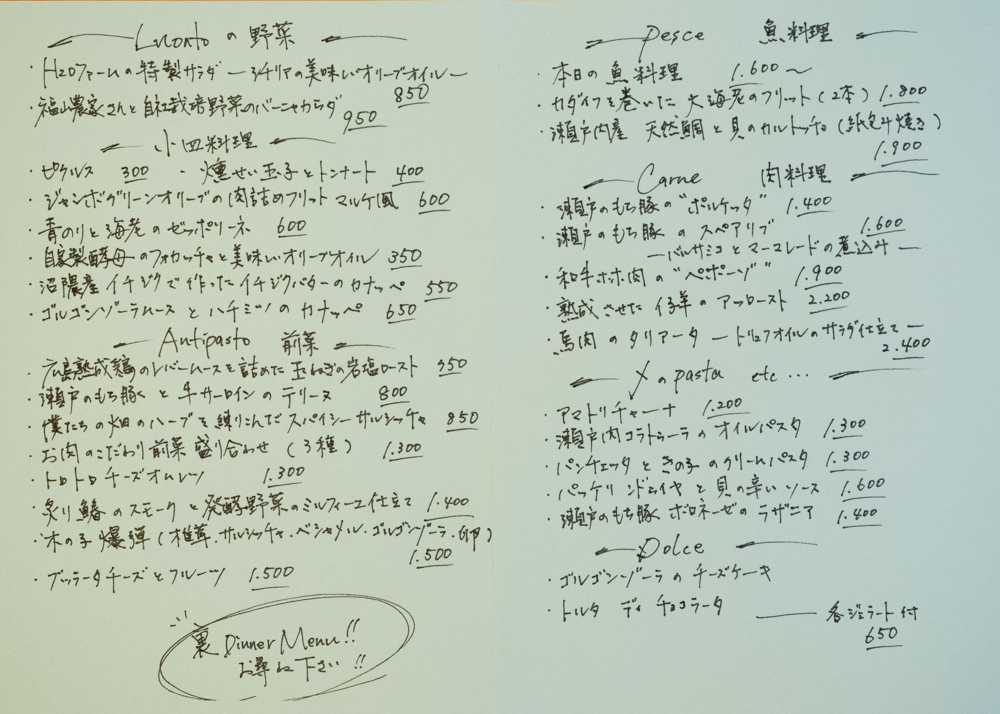 Luonto の 野菜
・H2Oファームの特製サラダ ―シチリアの美味しいオリーブオイル―
850
福山農家さんと自社栽培野菜のバーニャカウダ
950
小皿料理
・ピクルス 300 ・燻せい玉子とトンナート 400
・ジャンボグリーンオリーブの肉詰めフリット マルケ風 600
・青のりと海老のゼッポリーネ 600
・自家製酵母のフォカッチャと美味しいオリーブオイル 350
・沼隈産イチジクで作ったイチジクバターのカナッペ 550
・ゴルゴンゾーラムースとハチミツのカナッペ 650
Antipasto 前菜
・広島熟成鶏のレバームースを詰めた玉ねぎの岩塩ロースト 950
・瀬戸のもち豚と牛サーロインのテリーヌ 800
・僕たちの畑のハーブを練りこんだスパイシーサルシッチャ 850
・お肉のこだわり前菜盛り合わせ (3種) 1.300
・トロトロチーズオムレツ 1.300
・炙り鰆のスモークと発酵野菜のミルフィーユ仕立て 1.400
・木の子爆弾 (椎茸.サルシッチャ.ベシャメル.ゴルゴンゾーラ.卵)
1.500
・ブッラータチーズとフルーツ 1.500
裏 Dinner Menu!!
お尋ね下さい!!
Pesce 魚料理
・本日の魚料理 1.600～
・カダイフを巻いた大海老のフリット (2本) 1.800
・瀬戸内産 天然鯛と貝のカルトッチョ (紙包み焼き)
1.900
Carne 肉料理
・瀬戸のもち豚の"ポルケッタ" 1.400
・瀬戸のもち豚のスペアリブ 1.600
―バルサミコとマーマレードの煮込み―
・和牛ホホ肉の"ペポーゾ" 1.900
・熟成させた仔羊のアッロースト 2.200
・馬肉のタリアータ ―トリュフオイルのサラダ仕立て―
2.400
〆のpasta etc...
・アマトリチャーナ 1.200
・瀬戸内コラトゥーラのオイルパスタ 1.300
・パンチェッタときの子のクリームパスタ 1.300
・パッケリ ンドゥイヤと貝の辛いソース 1.600
・瀬戸のもち豚ボロネーゼのラザニア 1.400
Dolce
・ゴルゴンゾーラのチーズケーキ
・トルタ ディ チョコラータ ―各ジェラート付
650